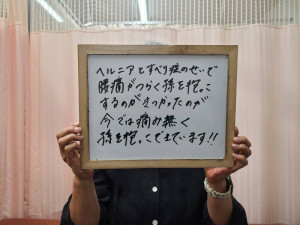 ヘルニアとすべり症のせいで
腰痛がつらく孫を抱っこ
するのがえつかったのが
今では痛み無く
孫を抱っこできています!!